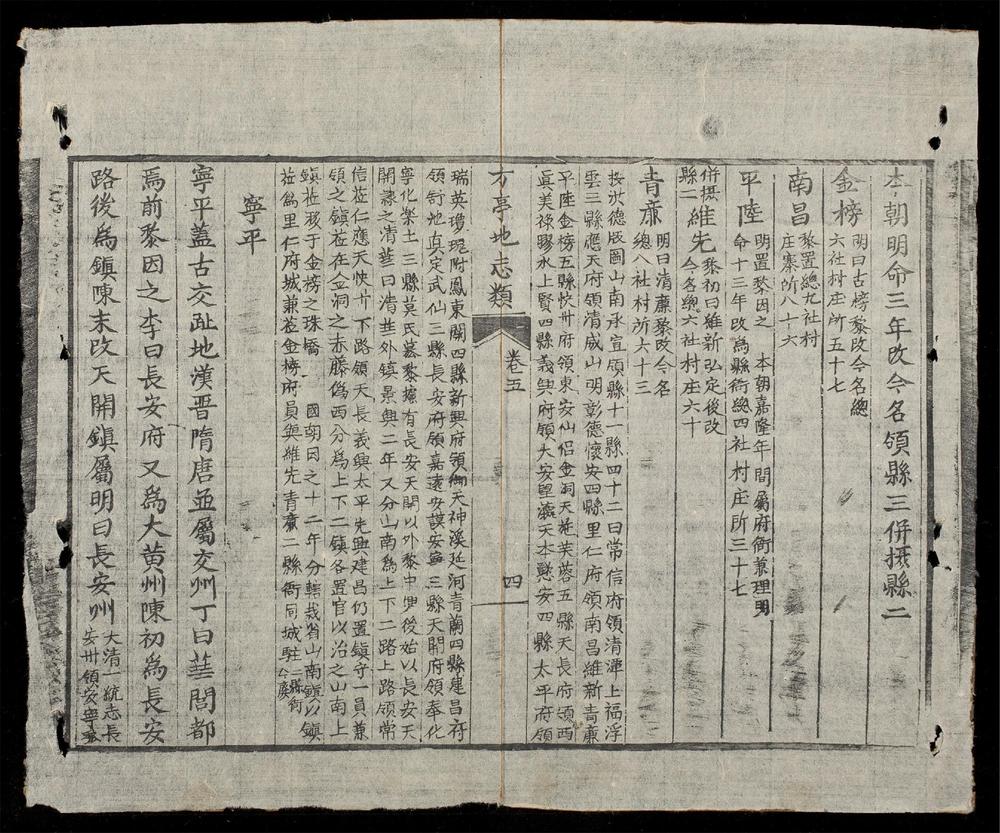 本朝明命三年改今名領縣三併摄縣二
金榜 明曰古榜黎改今名總
六社村庄所五十七
南昌 黎置總九社村
庄寨所八十六
平陸 明置黎因之 本朝嘉隆年間屬府衙兼理明
命十三年改為縣衙總四社村庄所三十七
併摄
縣二 維先 黎初曰維新弘定後改
今名總六社村庄六十
青廉 明曰清廉黎改今名
總八社村所六十三
按洪德版圖山南承宣領縣十一縣四十二曰常信府領清潭上福浮
雲三縣應天府領清威山明彰德懷安四縣里仁府領南昌維新青廉
平陸金榜五縣快州府領東安仙侶金洞天施芙蓉五縣天長府領西
真美祿膠水上賢四縣義興府領大安望瀛天本懿安四縣太平府領
方亭地志類
卷五
四
瑞英瓊琨附鳳東關四縣新興府領御天神溪延河青蘭四縣建昌府
領舒池真定武仙三縣長安府領嘉遠安謨安寧三縣天開府領奉化
寧化樂土三縣莫氏墓黎擁有長安天開以外黎中興後始以長安天
開隸之清華曰清華外鎮景興二年又分山南為上下二路上路領常
信莅仁應天快州下路領天長義興太平先興建昌仍置鎮守一員兼
領之鎮莅在金洞之赤藤偽西分為上下二鎮各置官以治之山南上
鎮莅移于金榜之珠橋 國朝因之十二年分轄裁省山南鎮以鎮
莅為里仁府城兼莅金榜府員與維先青廉二縣衙同城駐
寧平
寧平蓋古交趾地漢晋隋唐並屬交州丁曰華閭都
焉前黎因之李曰長安府又為大黄州陳初為長安
路後為鎮陳末改天開鎮屬明曰長安州 大清一統志長
安州領安寧